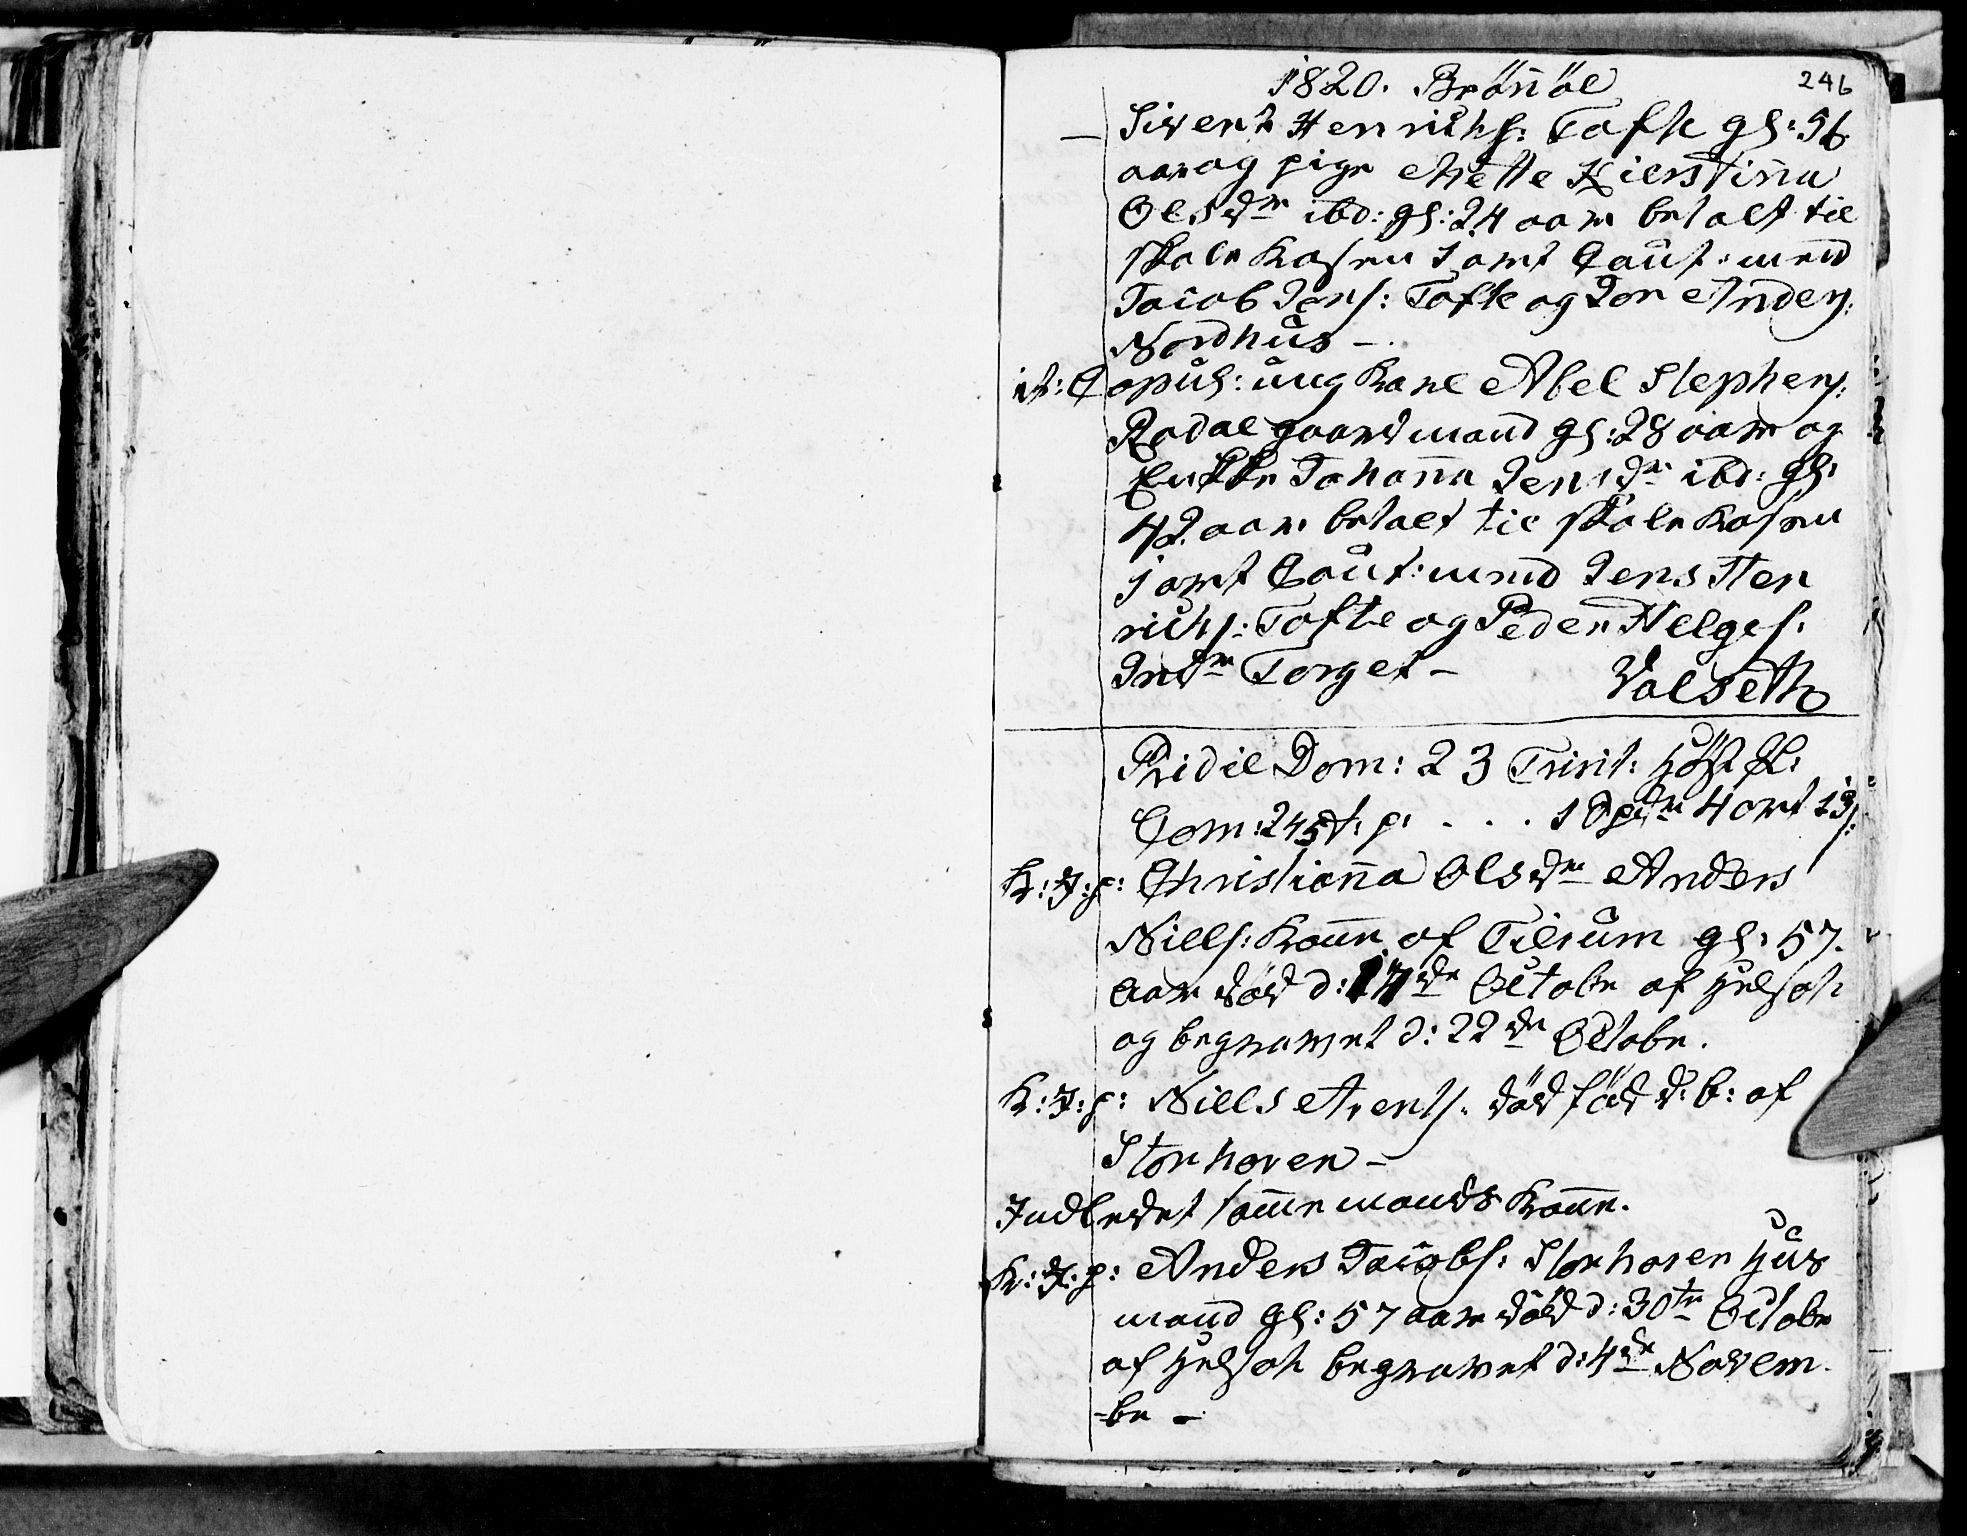 1820. Brönöe
246
Sivert Henrichs: Tofte gl: 56
aar og pige Mette Kierstinna
Olsdr ibd: gl: 24 aar betalt til
skole Kassen samt Caut: med
Jacob Jens: Tofte og Jon Anders:
Nordhus -
it: Copul: ung Karl Abel Stephens:
Rodal gaardmand gl: 28 aar og
Enkke Johanna Jensdr ibd: gl:
42 aar betalt til skole Kassen
samt Caut: med Jens Hen
richs: Tofte og Peder Helges:
Indr Torget -
Valseth
Pridie Dom: 23 Trinit:
Com: 245 t: p: . . . 1 Spdr 4 ort 13 s:
K: J: p: Christianna Olsdr Anders
Niells: Kone af Tilrum gl: 57
aar död d: 17de Octobr af
og begravet d: 22de Octobr.
K: J: p: Niells Arents: död föd d: b: af
Storhoven -
Indledet samme mands Kone.
K: J: p: Anders Jacobs: Storhoven Huus
mand gl: 57 aar död d: 30te Octobr
af begravet d: 4de Novem
-br -